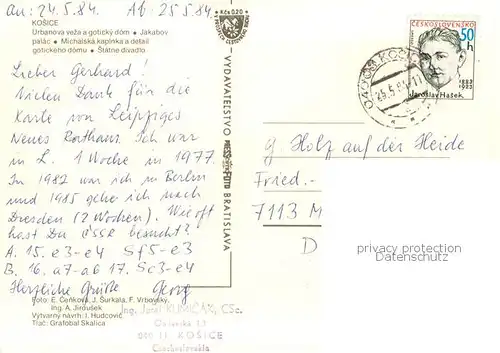 An: 24.5.84. Ab: 25.5.84.
KOŠICE
Urbanova veža a gotický dóm • Jakabov
palác • Michalská kaplnka a detail
gotického dómu • Štátne divadlo
Lieber Gerhard!
Vielen Dank für die
Karte von Leipziges
Neues Rathaus. Ich war
in L. 1 Woche in 1977.
In 1982 war ich in Berlin
und 1985 gehe ich nach
Dresden (2 Wochen). Wie oft
hast Du ČSSR besucht?
A. 15. e3-e4 Sf5-e3
B. 16. a7-a6 17. Sc3-e4
Herzliche Grüße Georg
Foto: E. Čeňková, J. Šurkala, F. Vrbovský,
Ing. A. Jiroušek
Výtvarný návrh: I. Hudcovič
Tlač: Grafobal Skalica
Ing. Juraj KUMIČÁK, CSc.
KOŠICE
Czechoslovakia
Kčs 0,20
VYDAVATEĽSTVO
BRATISLAVA
ČESKOSLOVENSKO
50
h
1883
1923
Jaroslav Hašek
25.5.84
g. Holz auf der Heide
Fried.-
7113 M
D
PRIVACY PROTECTION
Datenschutz